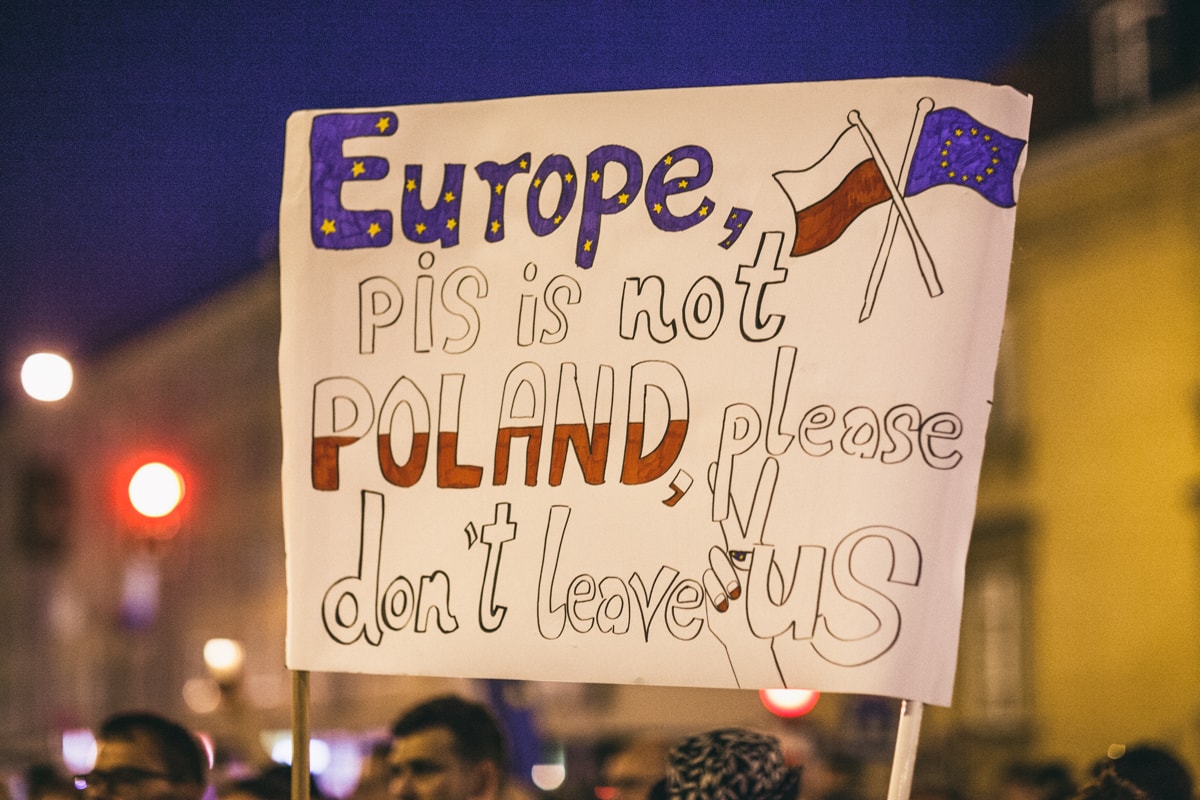 Europe,
PiS is not
POLAND, please
don't leave us